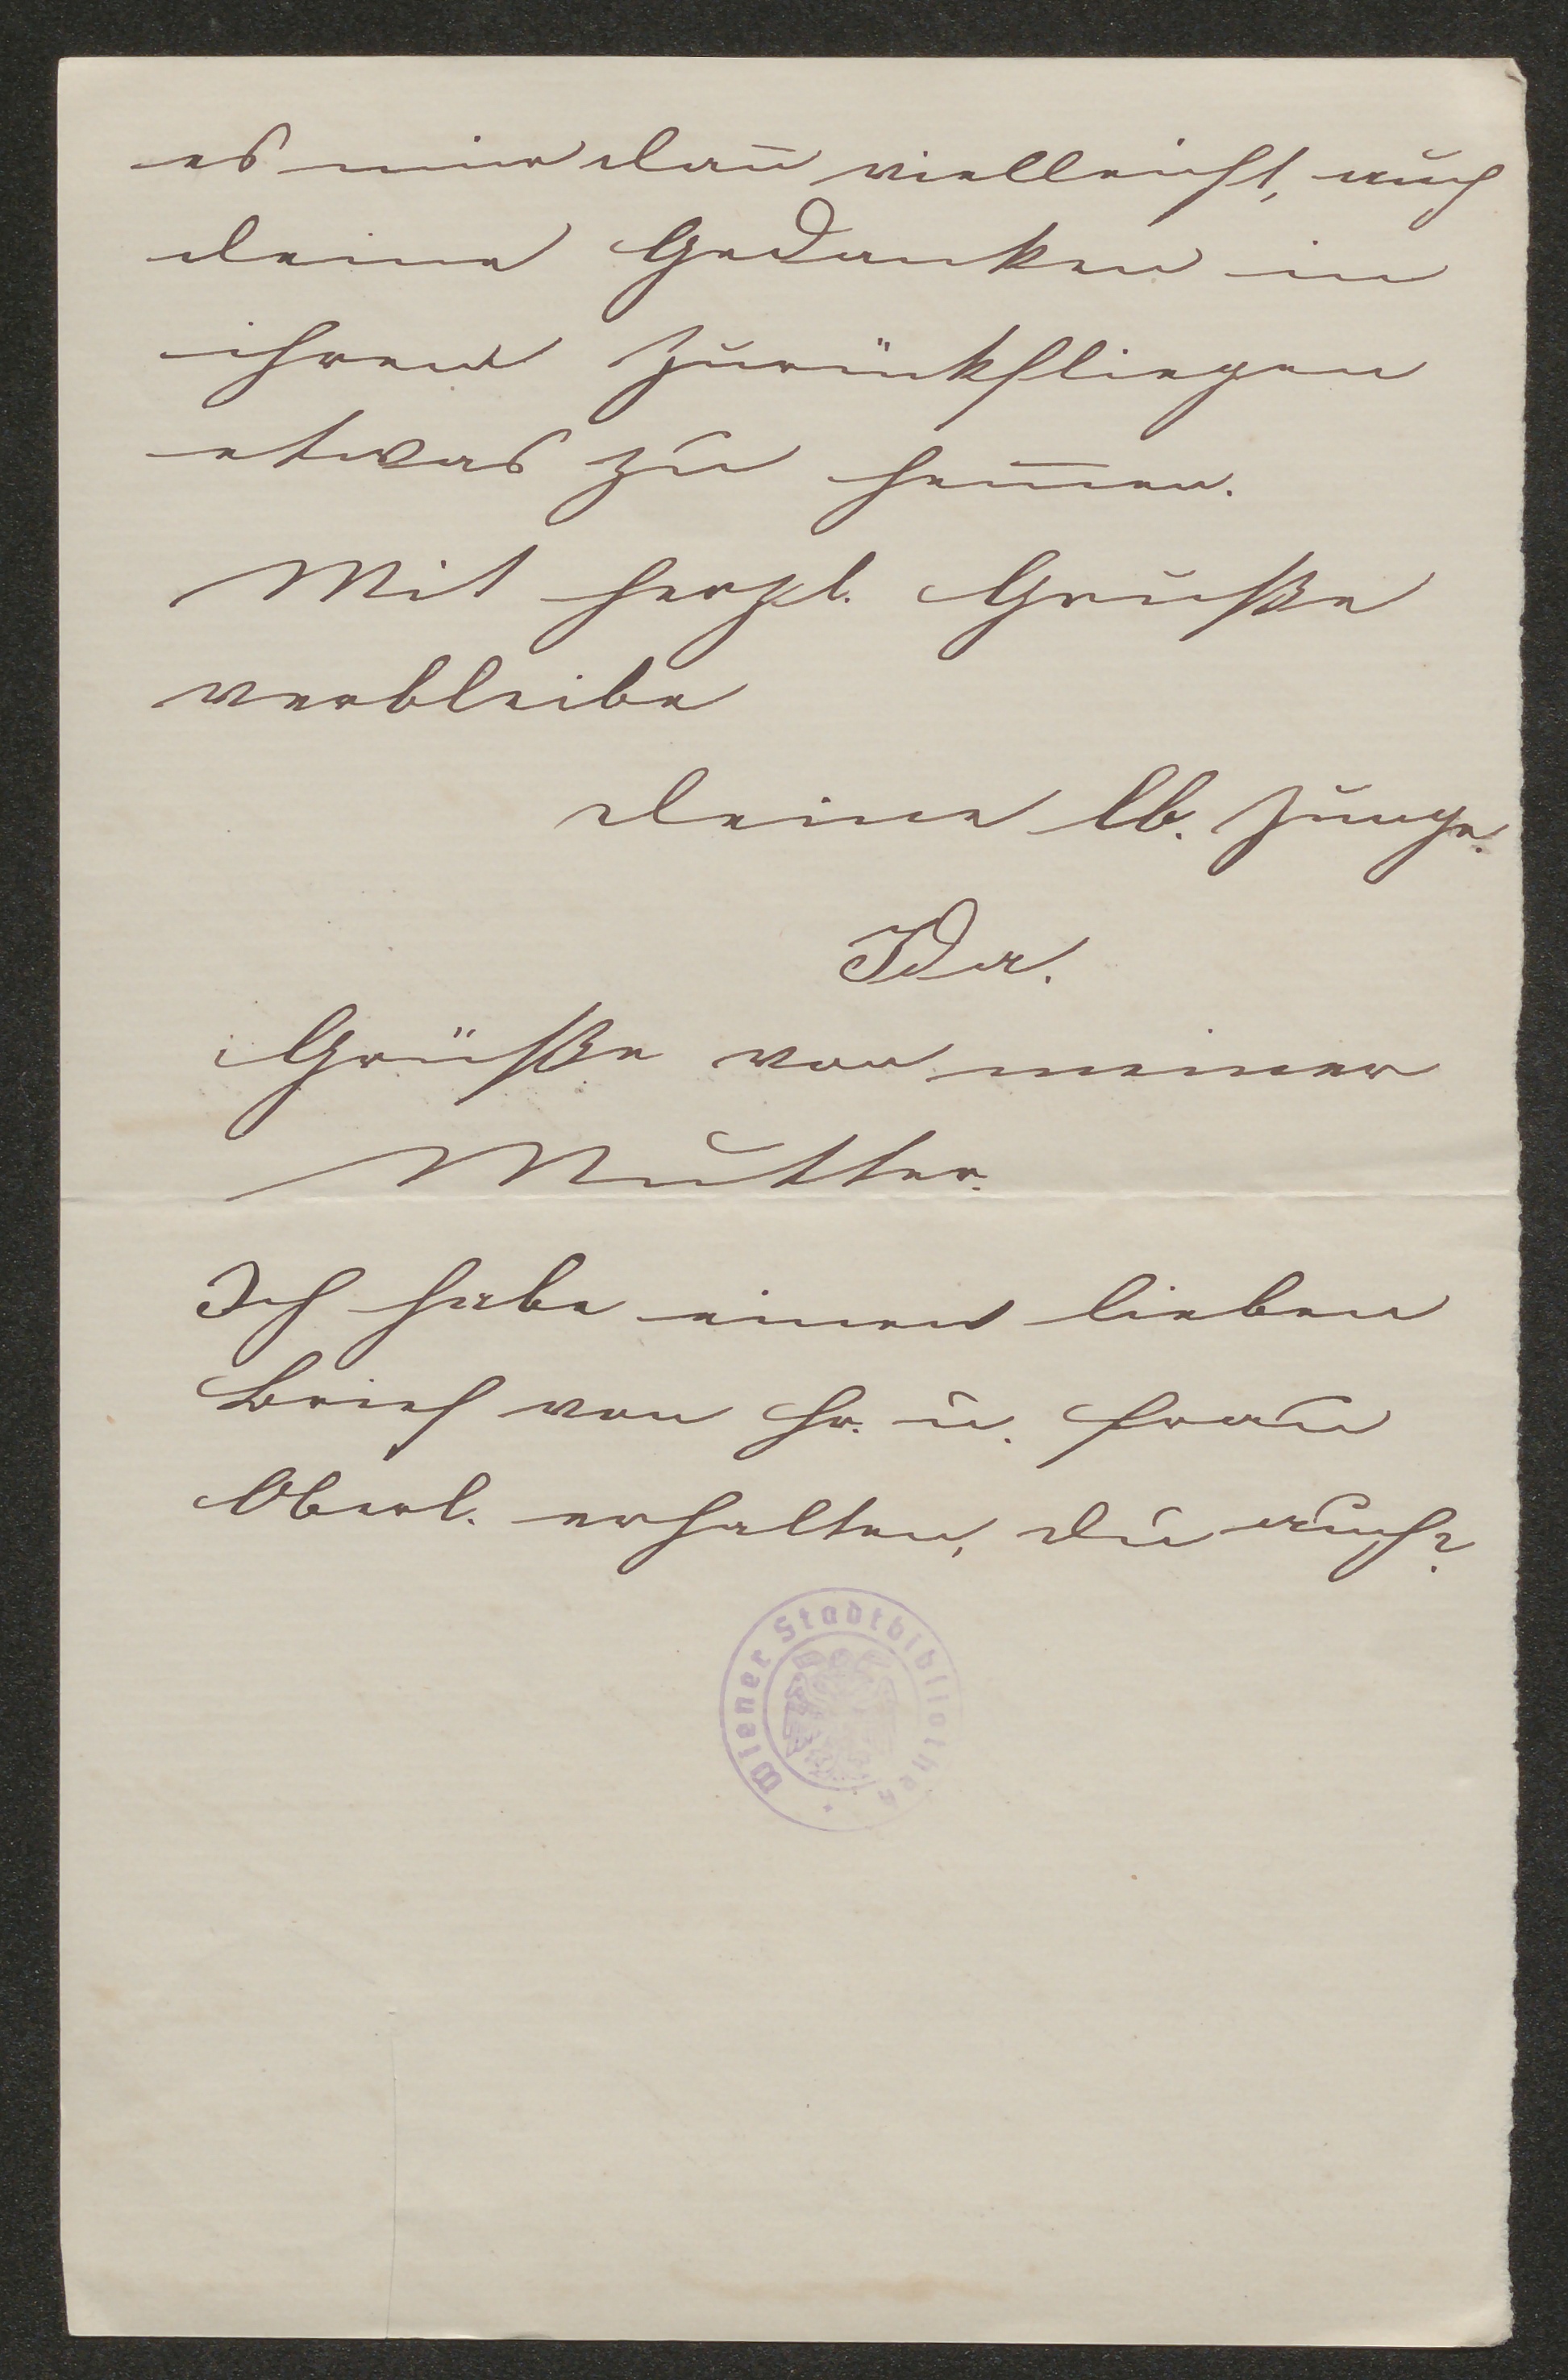 es mir dan̄ vielleicht, auch
deine Gedanken in
ihrem Zurückfliegen
etwas zu hem̄en.
Mit herzl. Gruße
verbleibe
deine lb. Junge.
Ida.
Grüße von meiner
Mutter.
Ich habe einen lieben
Brief von Hr. u. Frau
Oberl. erhalten, du auch?
Wiener Stadtbibliothek